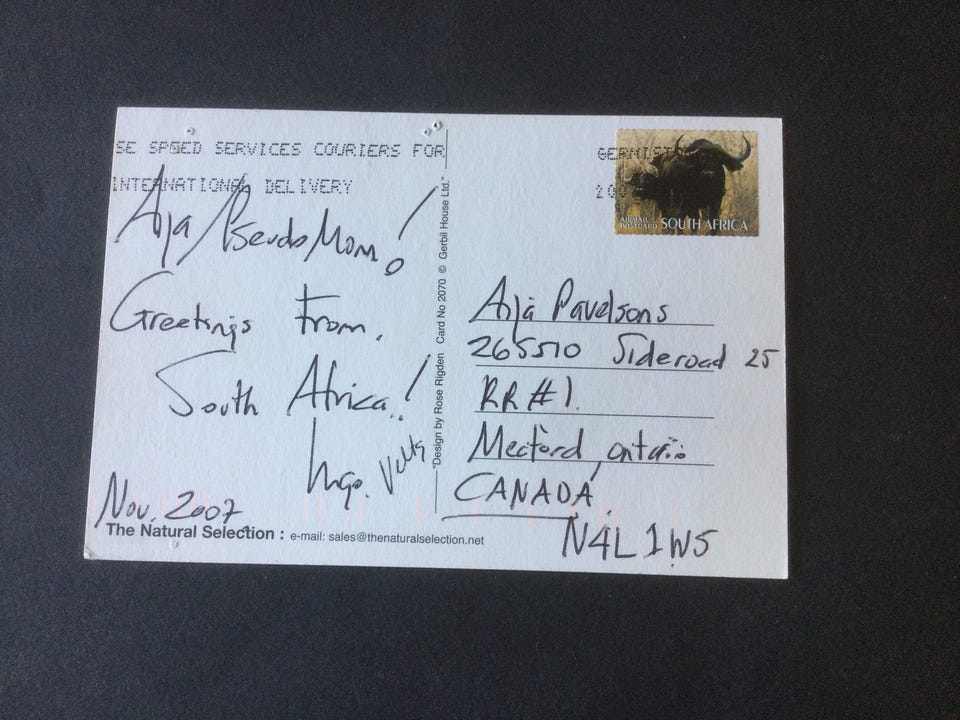 SE SPEED SERVICES COURIERS FOR
INTERNATIONAL DELIVERY
Aija/Pseudo Mom!
Greetings From.
South Africa.!
Ingo. Velts
Nov. 2007
The Natural Selection : e-mail: sales@thenaturalselection.net
"Design by Rose Rigden Card No 2070 © Gerbil House Ltd."
AIRMAIL
POSTCARD SOUTH AFRICA
Aija Pavelsons
265510 Sideroad 25
RR#1.
Meaford, Ontario
CANADA.
N4L 1W5